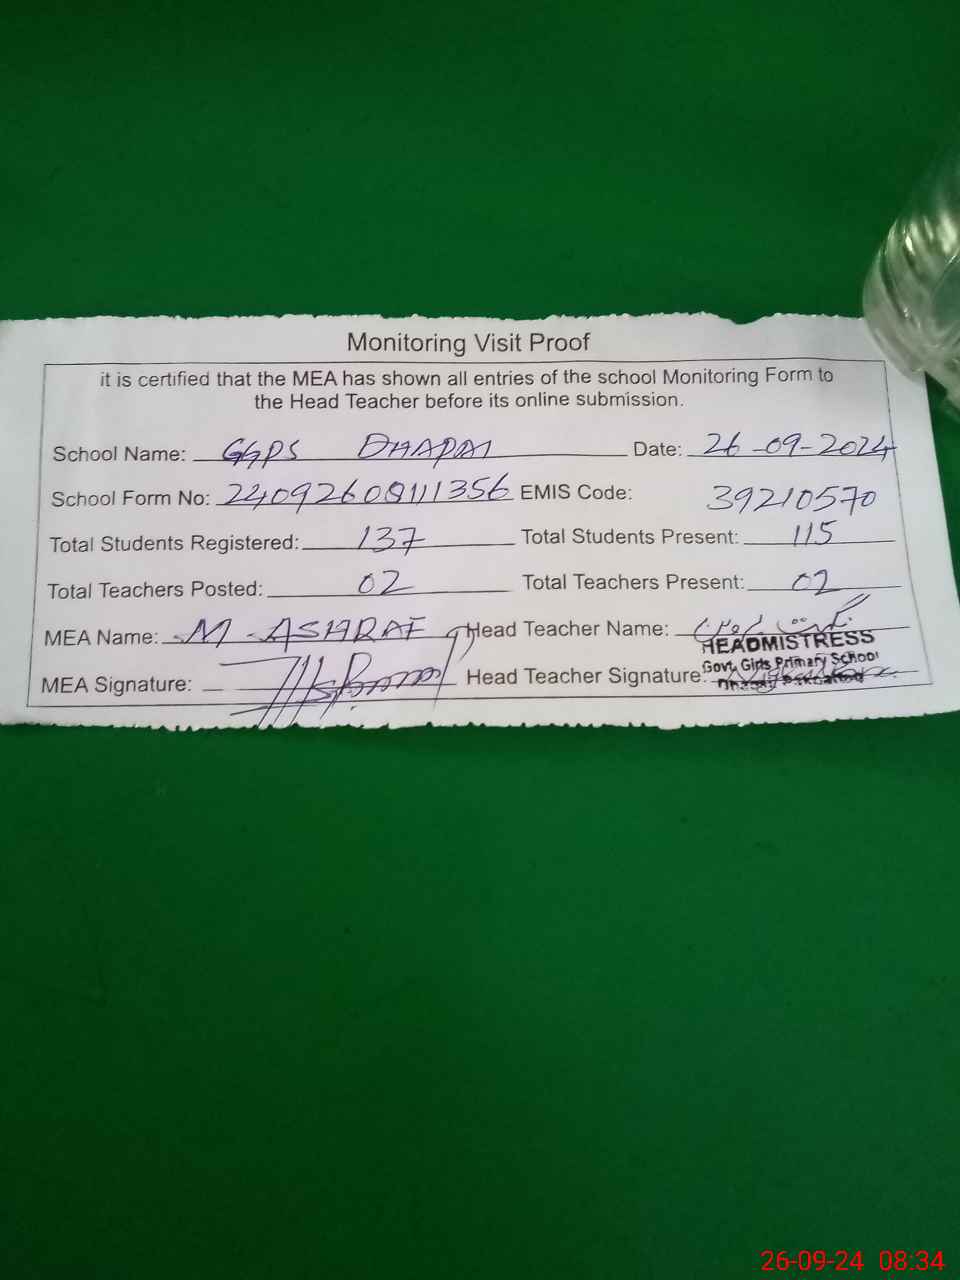 Monitoring Visit Proof
it is certified that the MEA has shown all entries of the school Monitoring Form to
the Head Teacher before its online submission.
School Name: GGPS DHAPAI Date: 26-09-2024
School Form No: 224092608111356 EMIS Code: 39210570
Total Students Registered: 137 Total Students Present: 115
Total Teachers Posted: 02 Total Teachers Present: 02
MEA Name: M-ASHRAF Head Teacher Name:
HEADMISTRESS
MEA Signature: Head Teacher Signature: Govt. Girls Primary School
26-09-24 08:34